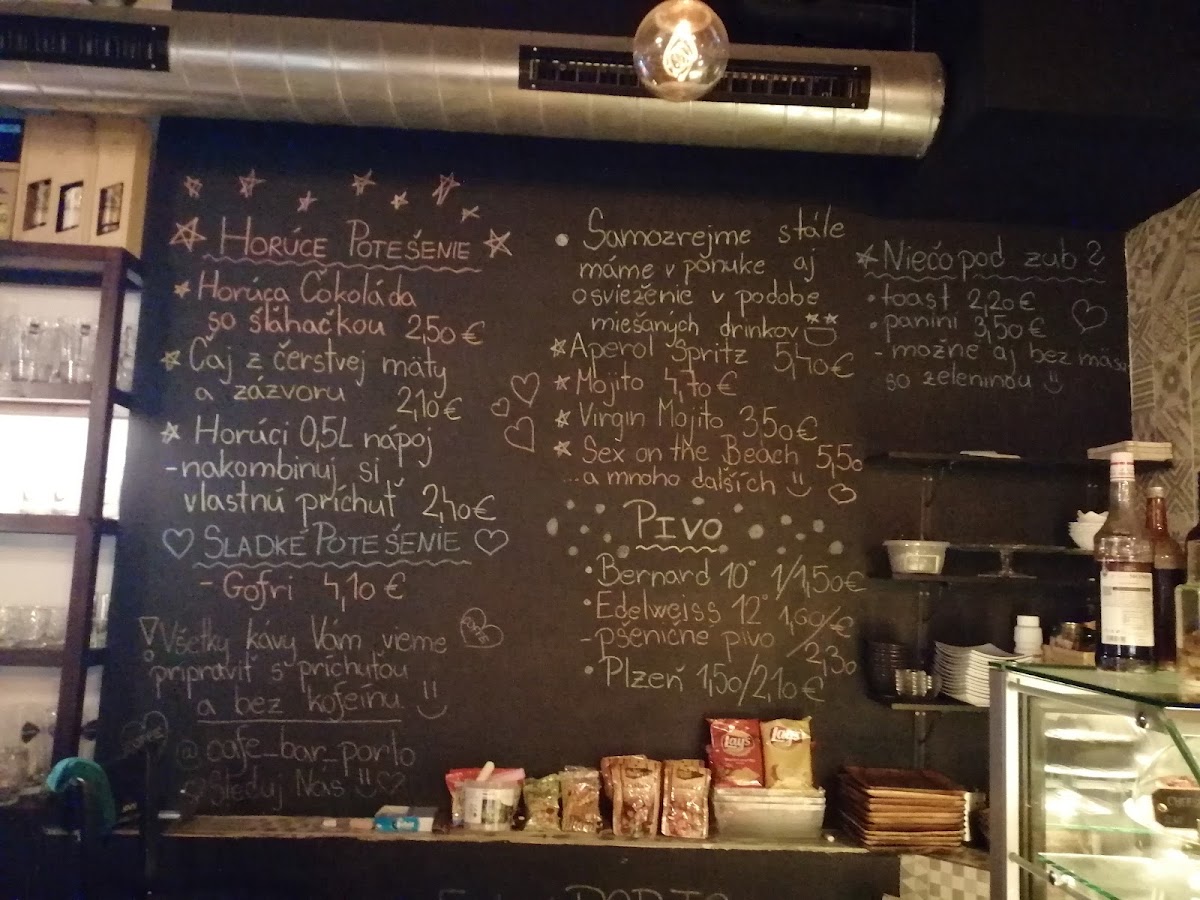 HORÚCE POTEŠENIE
Horúca Čokoláda
so šľahačkou 2,50 €
Čaj z čerstvej mäty
a zázvoru 2,10 €
Horúci 0,5L nápoj
- nakombinuj si
vlastnú príchuť 2,40 €
SLADKÉ POTEŠENIE
- Gofri 4,10 €
! Všetky kávy Vám vieme
pripraviť s príchuťou
a bez kofeínu
@cafe_bar_porto
Sleduj Nás
• Samozrejme stále
máme v ponuke aj
osvieženie v podobe
miešaných drinkov
Aperol Spritz 5,40 €
Mojito 4,70 €
Virgin Mojito 3,50 €
Sex on the Beach 5,50
... a mnoho ďalších
PIVO
• Bernard 10° 1/1,50 €
• Edelweiss 12° 1,60/
2,30 €
- pšeničné pivo
• Plzeň 1,50/2,10 €
Niečo pod zub?
• toast 2,20 €
• panini 3,50 €
- možné aj bez mäsa
so zeleninou
Lay's
Lay's